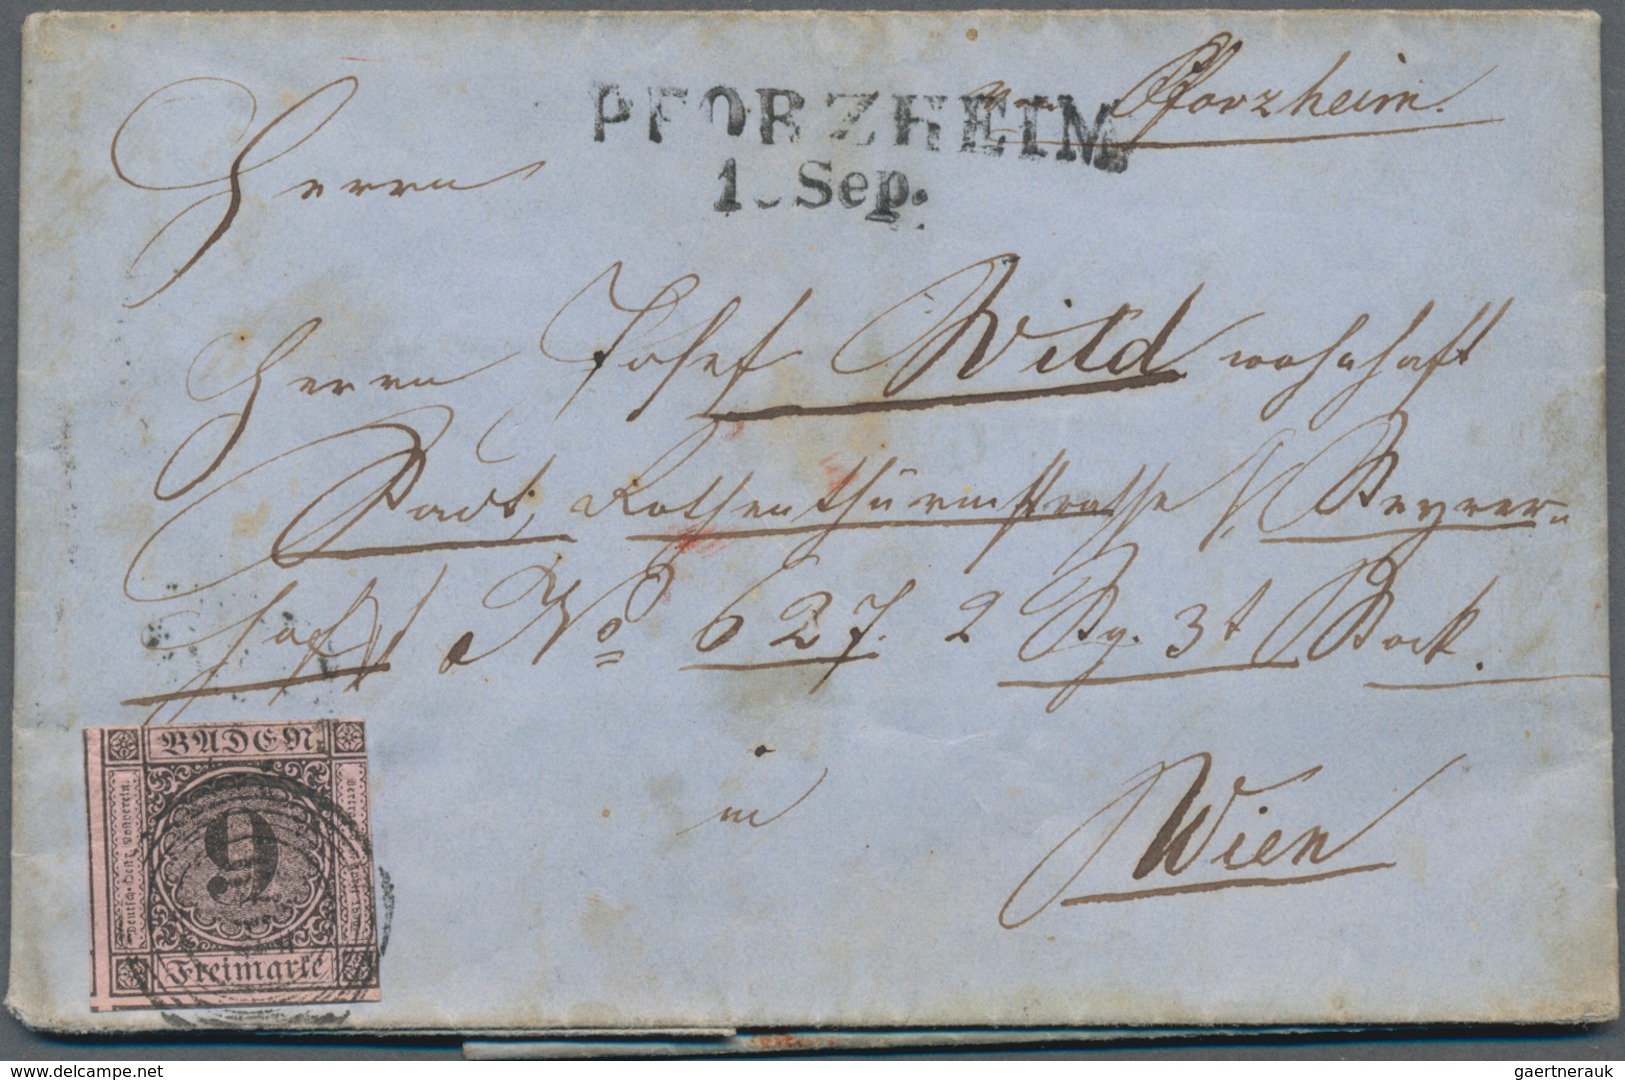 Pforzheim.
PFORZHEIM
1 Sep.
Herrn
Herrn Josef Wild wohnhaft
Stadt, Rothenthürmstrasse Steyrer-
hof No 627. 2 Stg. 3t Stock.
in
Wien
BADEN
9
Freimarke
Deutsch-Oestr. Postverein.
delcampe.net
gaertnerauk